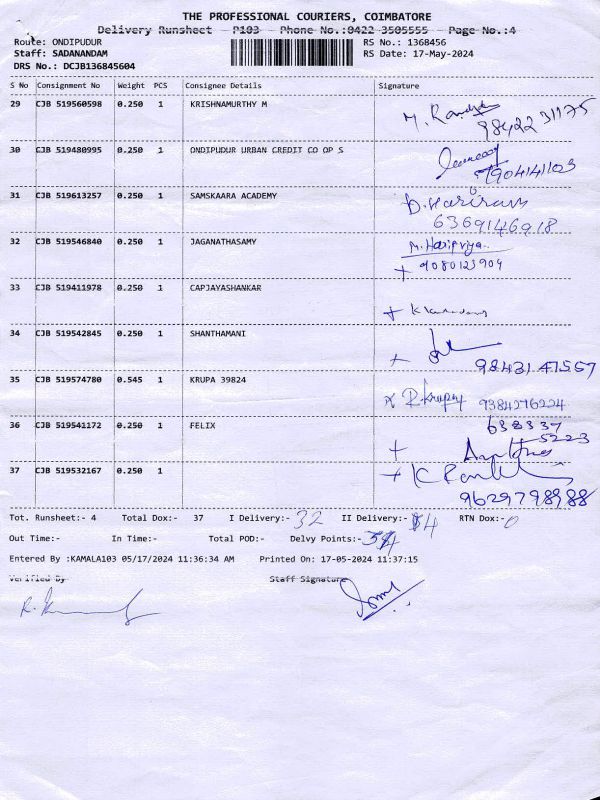 THE PROFESSIONAL COURIERS, COIMBATORE
Delivery Runsheet - P103 - Phone No.:0422 3505555 - Page No.:4
Route: ONDIPUDUR RS No.: 1368456
Staff: SADANANDAM RS Date: 17-May-2024
DRS No.: DCJB136845604
S No Consignment No Weight PCS Consignee Details Signature
29 CJB 519560598 0.250 1 KRISHNAMURTHY M
98422 31175
30 CJB 519480995 0.250 1 ONDIPUDUR URBAN CREDIT CO OP S
7904141103
31 CJB 519613257 0.250 1 SAMSKAARA ACADEMY D. Hariram
6369146918
32 CJB 519546840 0.250 1 JAGANATHASAMY M. Haripriya
+ 9080123909
33 CJB 519411978 0.250 1 CAPJAYASHANKAR
+
34 CJB 519542845 0.250 1 SHANTHAMANI
+ 98431 47557
35 CJB 519574780 0.545 1 KRUPA 39824
x R. Krupa 9384276224
36 CJB 519541172 0.250 1 FELIX 638337
5223
+
37 CJB 519532167 0.250 1 + K
9629798988
Tot. Runsheet:- 4 Total Dox:- 37 I Delivery:- 32 II Delivery:- 4 RTN Dox:- 0
Out Time:- In Time:- Total POD:- Delvy Points:-
Entered By :KAMALA103 05/17/2024 11:36:34 AM Printed On: 17-05-2024 11:37:15
Verified By Staff Signature